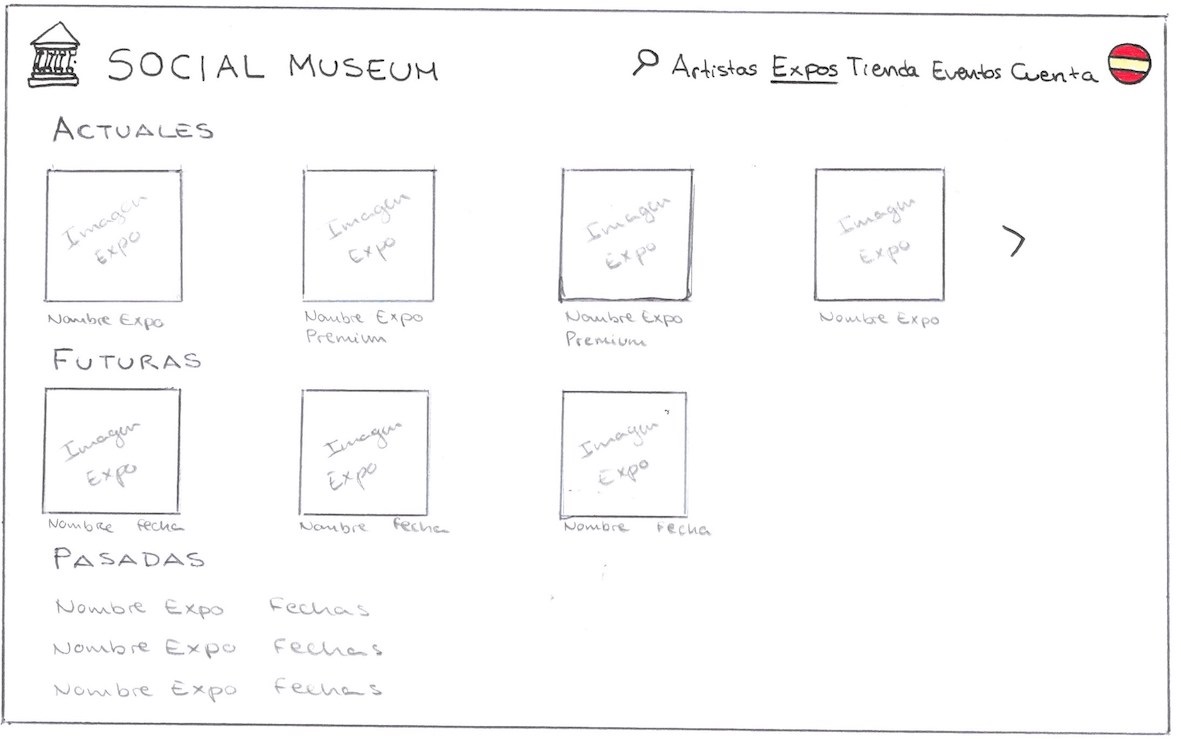 SOCIAL MUSEUM
Artistas Expos Tienda Eventos Cuenta
ACTUALES
Imagen Expo
Imagen Expo
Imagen Expo
Imagen Expo
Nombre Expo
Nombre Expo Premium
Nombre Expo Premium
Nombre Expo
FUTURAS
Imagen Expo
Imagen Expo
Imagen Expo
Nombre Fecha
Nombre Fecha
Nombre Fecha
PASADAS
Nombre Expo Fechas
Nombre Expo Fechas
Nombre Expo Fechas